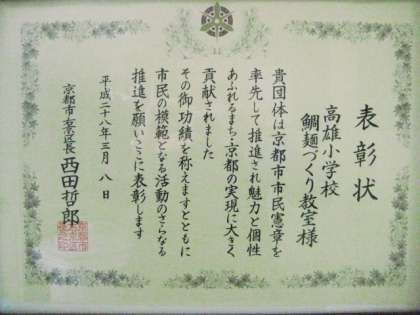 表彰状
高雄小学校
鯛麺づくり教室様
貴団体は京都市市民憲章を
率先して推進され魅力と個性
あふれるまち・京都の実現に大きく
貢献されました
その御功績を称えますとともに
市民の模範となる活動のさらなる
推進を願いここに表彰します
平成二十八年三月八日
京都市右京区長 西田哲郎